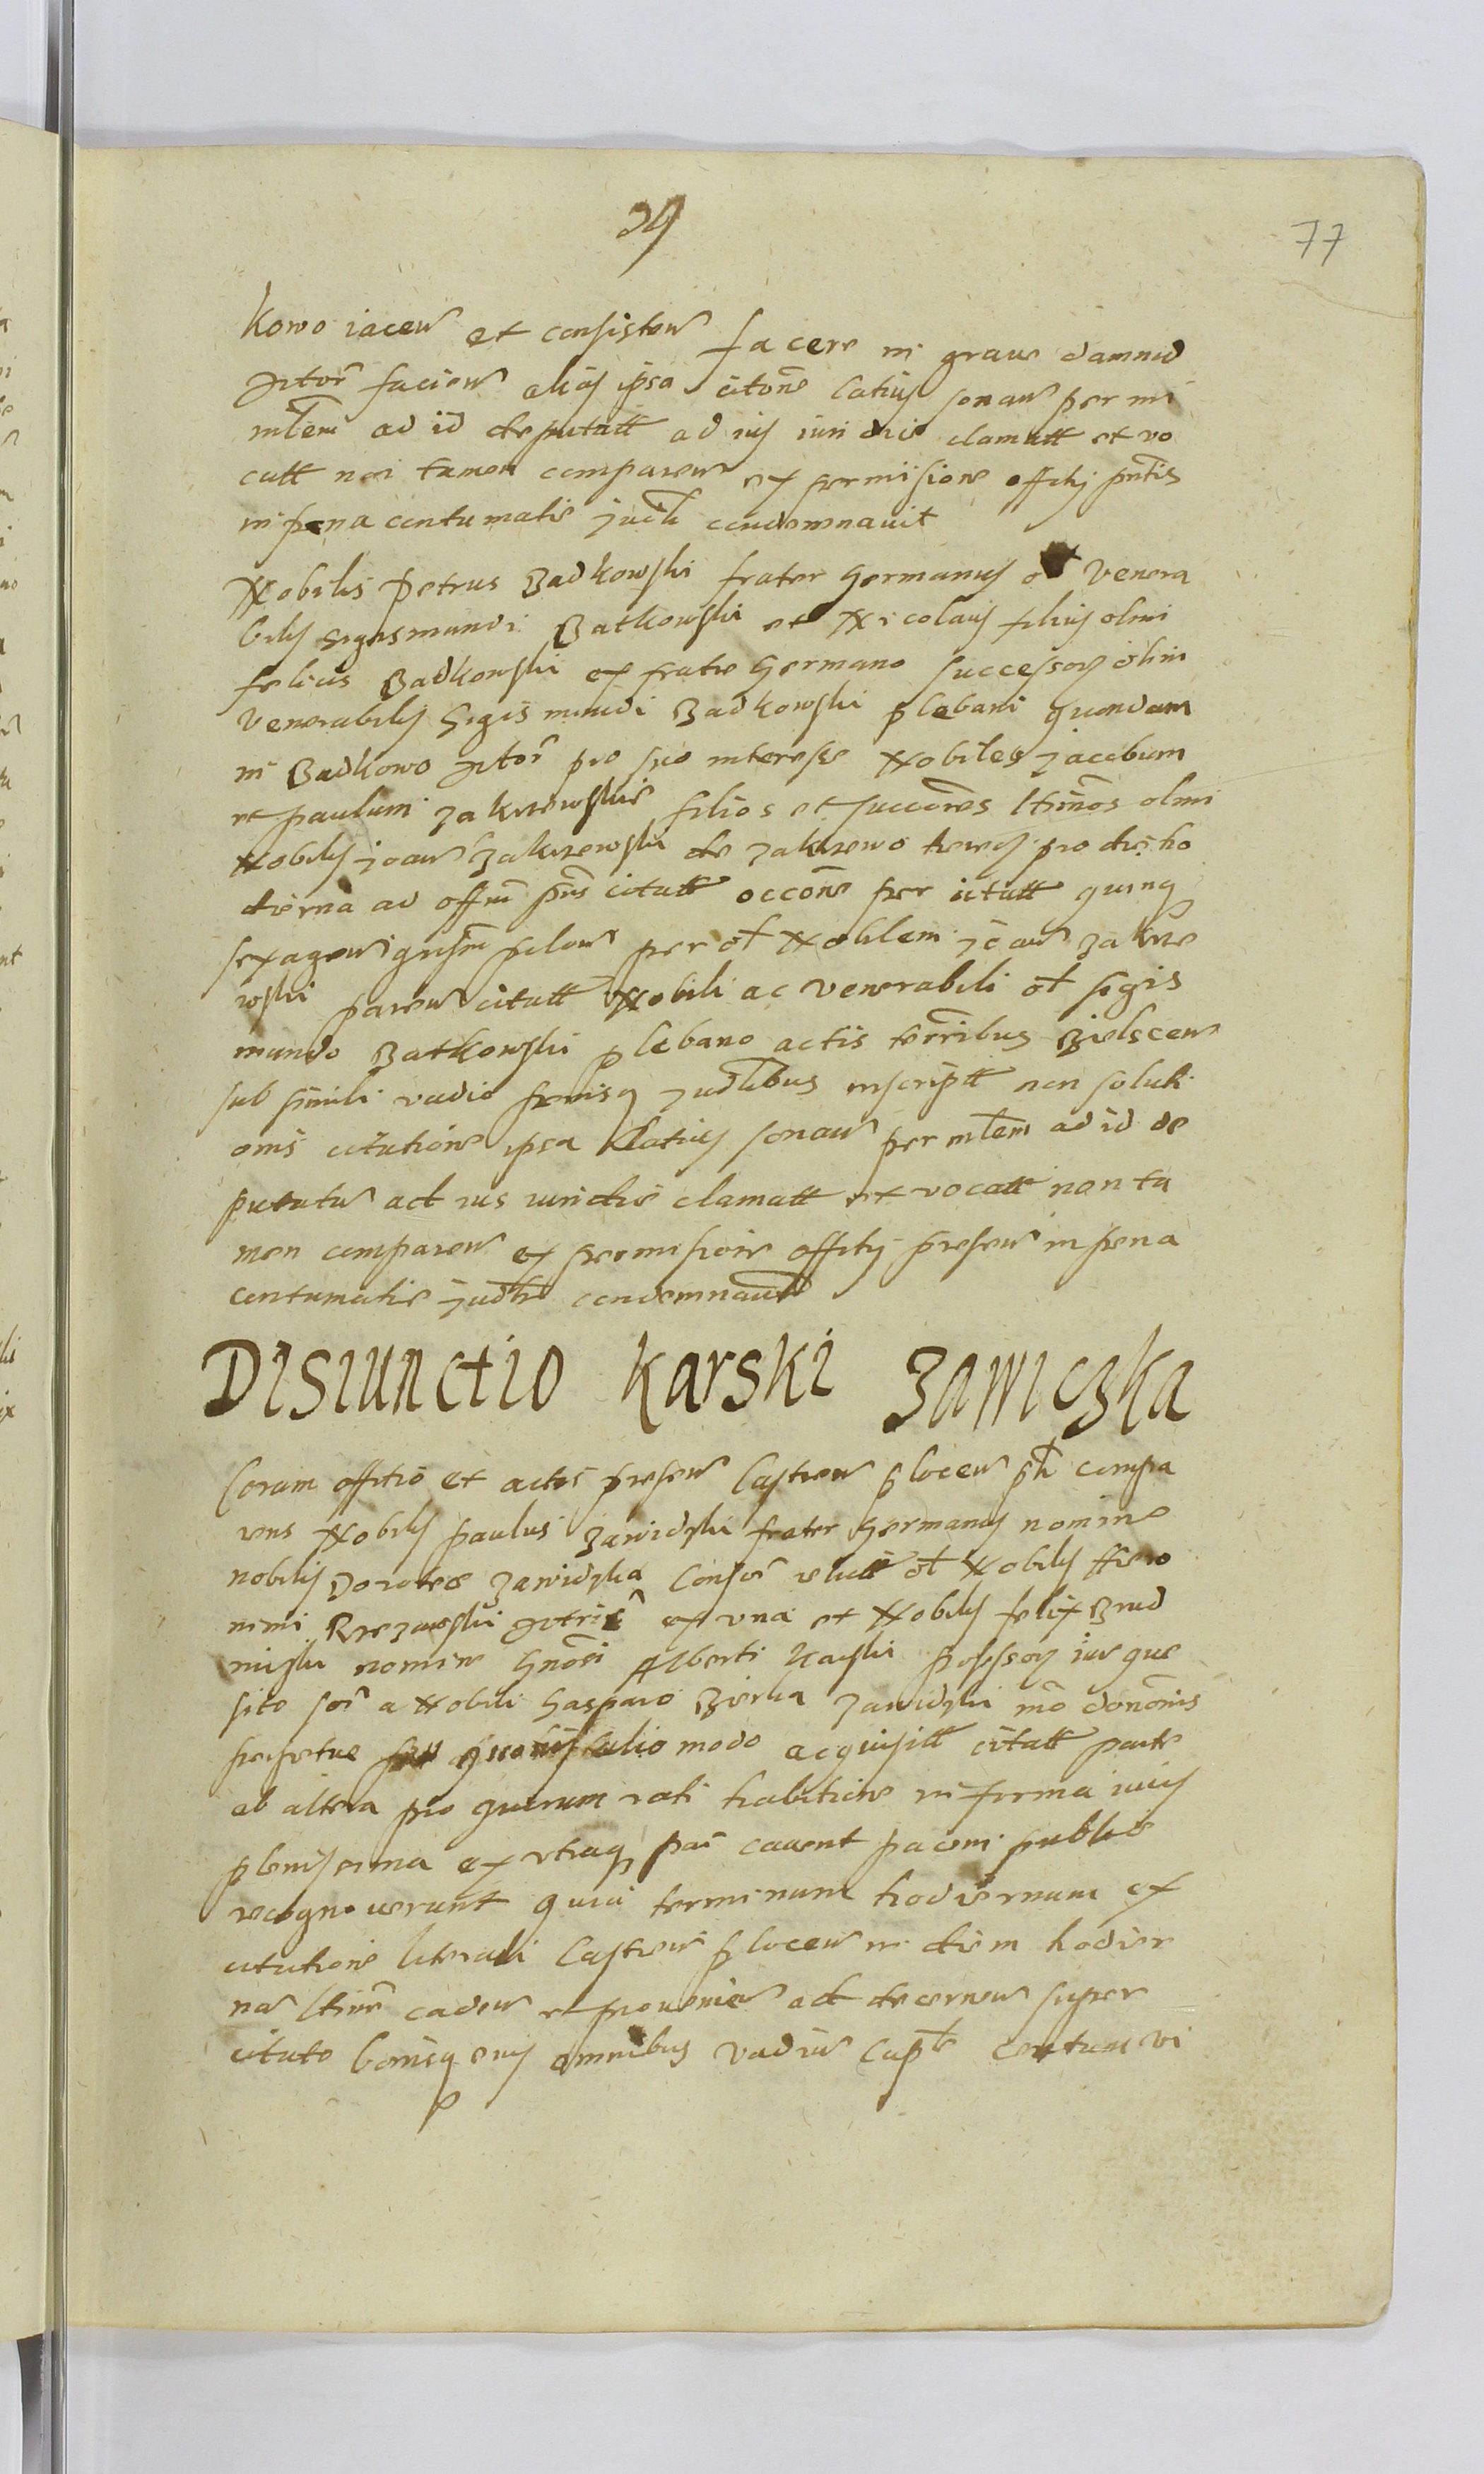 39
77
kowo iacen et consisten facere in graue damnu
Actor facien alias ipsa citone latius sonan per mi
mlem ad id deputatt ad ius iuridice clamatt et vo
catt non tamen comparen ex permisione offitij pntis
in pena contumatie judli condemnauit
Nobilis Petrus Badkowski frater germanus ol venera
bilis Sigismundi Batkowski et Nicolaus filius olim
felicis Badkowski ex fratre germano successores olim
venerabilis Sigismundi Badkowski plebani quondam
in Badkowo Actor pro suo interesse Nobiles jacobum
et paulum zakrzewskie filios et succores ltimos olim
Nobilis joan Zakrzewski de zakrzewo heredes pro die ho
dierna ad offm pns citatt occone per citatt quinq
sexagen pecun per ol Nobilem joan zakrze
wski paren citatt Nobili ac venerabili ol sigis
mundo Batkowski plebano actis terribus Bielscen
sub simili vadio penisq judlibus inscriptt non soluti
onis citatione ipsa latius sonan per mlem ad id de
putatu ad ius iuridice clamatt et vocatt non ta
men comparen ex permisione offitij presen in pena
contumatie judli condemnauit
Disiunctio Karski Zawiczka
Coram offitio et actis presen Castren plocen plr compa
rens Nobilis paulus zawidzki frater germanus nomine
nobilis Dorothee zawidzka Consor relictt ol Nobilis Hiero
nimi Actricis ex una et Nobilis felix Brud
nicki nomine Gnosi Alberti Karski possessor iure que
sito a Nobili Gasparo Bierka zawidzki mo dononis
perpetue quouis alio modo acquisitt citatt parte
ab altera pro quorum rati habitione in forma iuris
plenissima ex utraq par cauent pacem publice
recognouerunt quia terminum hodiernum ex
citatione literali Castren plocen in diem hodier
na ltime caden et prouenien ad decernen super
citato bonisq eius omnibus vadiu Caple Centum vi